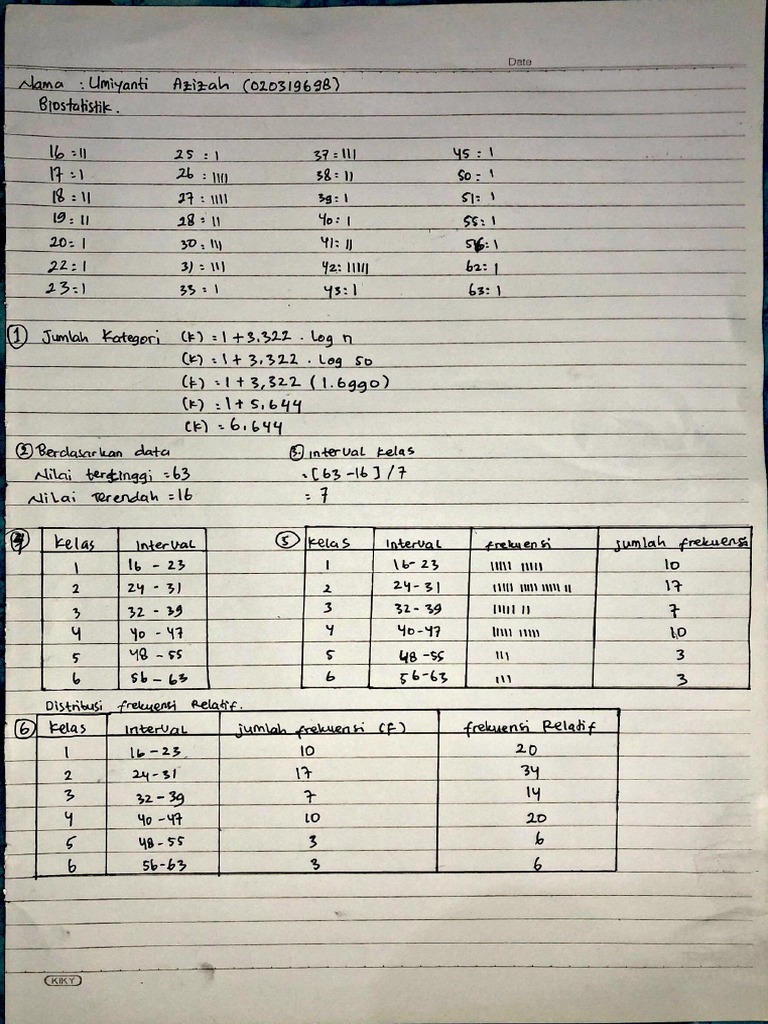 Date
Nama : Umiyanti Azizah (020319698)
Biostatistik.
16 = II 25 : I 37 = III 45 : I
17 = I 26 : IIII 38 = II 50 = I
18 = II 27 = IIII 39 = I 51 = I
19 = II 28 = II 40 : I 55 : I
20 = I 30 = III 41 = II 56 : I
22 = I 31 = III 42 : IIIII 62 : I
23 = I 33 = I 43 : I 63 : I
1 Jumlah Kategori (k) = 1 + 3.322 . Log n
(k) = 1 + 3.322 . Log 50
(k) = 1 + 3,322 (1.6990)
(k) = 1 + 5,644
(k) = 6,644
2 Berdasarkan data 3. interval kelas
Nilai tertinggi = 63 = [63 - 16] / 7
Nilai Terendah = 16 = 7
4 Kelas Interval 5 Kelas Interval frekuensi jumlah frekuensi
1 16 - 23 1 16 - 23 IIIII IIIII 10
2 24 - 31 2 24 - 31 IIIII IIIII IIIII II 17
3 32 - 39 3 32 - 39 IIIII II 7
4 40 - 47 4 40 - 47 IIIII IIIII 10
5 48 - 55 5 48 - 55 III 3
6 56 - 63 6 56 - 63 III 3
Distribusi frekuensi Relatif.
6 Kelas Interval jumlah frekuensi (F) frekuensi Relatif
1 16 - 23 10 20
2 24 - 31 17 34
3 32 - 39 7 14
4 40 - 47 10 20
5 48 - 55 3 6
6 56 - 63 3 6
KIKY